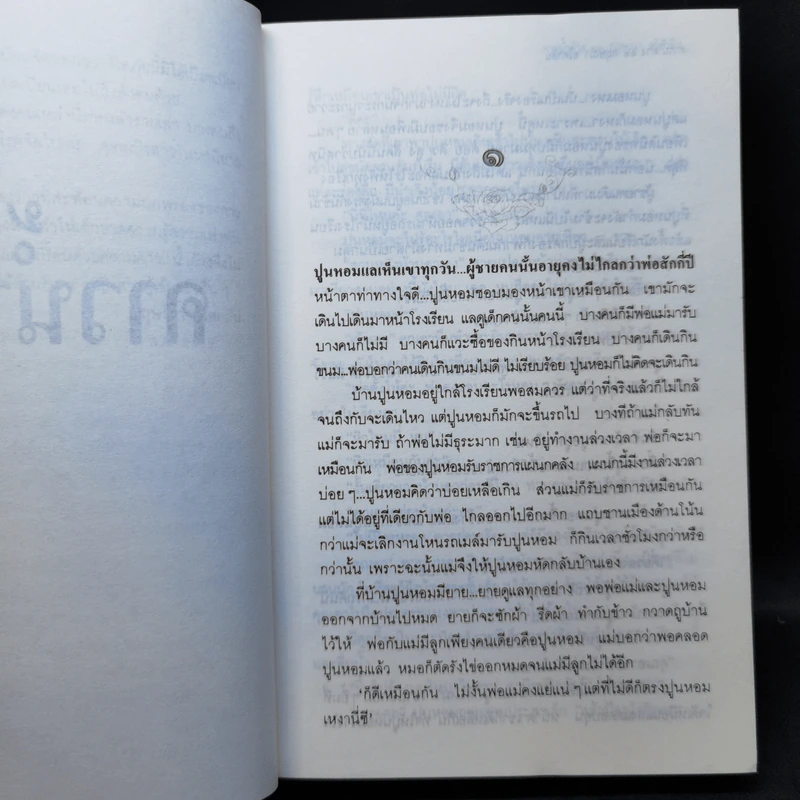 ๑
ปูนหอมแลเห็นเขาทุกวัน...ผู้ชายคนนั้นอายุคงไม่ไกลกว่าพ่อสักกี่ปี
หน้าตาท่าทางใจดี...ปูนหอมชอบมองหน้าเขาเหมือนกัน เขามักจะ
เดินไปเดินมาหน้าโรงเรียน แลดูเด็กคนนั้นคนนี้ บางคนก็มีพ่อแม่มารับ
บางคนก็ไม่มี บางคนก็แวะซื้อของกินหน้าโรงเรียน บางคนก็เดินกิน
ขนม...พ่อบอกว่าคนเดินกินขนมไม่ดี ไม่เรียบร้อย ปูนหอมก็ไม่คิดจะเดินกิน
บ้านปูนหอมอยู่ใกล้โรงเรียนพอสมควร แต่ว่าที่จริงแล้วก็ไม่ใกล้
จนถึงกับจะเดินไหว แต่ปูนหอมก็มักจะขึ้นรถไป บางทีถ้าแม่กลับทัน
แม่ก็จะมารับ ถ้าพ่อไม่มีธุระมาก เช่น อยู่ทำงานล่วงเวลา พ่อก็จะมา
เหมือนกัน พ่อของปูนหอมรับราชการแผนกคลัง แผนกนี้มีงานล่วงเวลา
บ่อย ๆ...ปูนหอมคิดว่าบ่อยเหลือเกิน ส่วนแม่ก็รับราชการเหมือนกัน
แต่ไม่ได้อยู่ที่เดียวกับพ่อ ไกลออกไปอีกมาก แถบชานเมืองด้านโน้น
กว่าแม่จะเลิกงานโหนรถเมล์มารับปูนหอม ก็กินเวลาชั่วโมงกว่าหรือ
กว่านั้น เพราะฉะนั้นแม่จึงให้ปูนหอมหัดกลับบ้านเอง
ที่บ้านปูนหอมมียาย...ยายดูแลทุกอย่าง พอพ่อแม่และปูนหอม
ออกจากบ้านไปหมด ยายก็จะซักผ้า รีดผ้า ทำกับข้าว กวาดถูบ้าน
ไว้ให้ พ่อกับแม่มีลูกเพียงคนเดียวคือปูนหอม แม่บอกว่าพอคลอด
ปูนหอมแล้ว หมอก็ตัดรังไข่ออกหมดจนแม่มีลูกไม่ได้อีก
‘ก็ดีเหมือนกัน ไม่งั้นพ่อแม่คงแย่แน่ ๆ แต่ที่ไม่ดีก็ตรงปูนหอม
เหงานี่ซี’